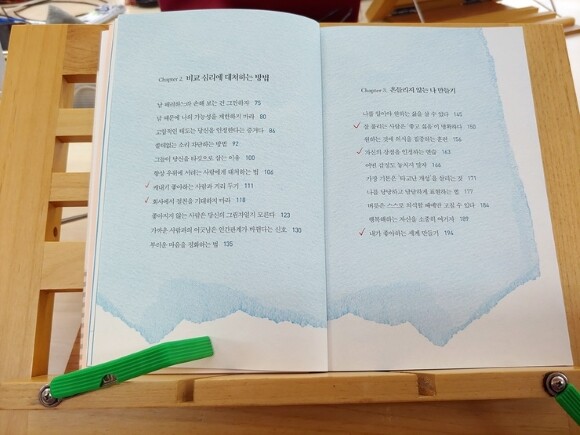 Chapter 2. 비교 심리에 대처하는 방법
남 배려하느라 손해 보는 건 그만하자 75
남 때문에 나의 가능성을 제한하지 마라 80
고압적인 태도는 당신을 인정한다는 증거다 86
쓸데없는 소리 차단하는 방법 92
그들이 당신을 타깃으로 삼는 이유 100
항상 우위에 서려는 사람에게 대처하는 법 106
✓ 깎아내기 좋아하는 사람과 거리 두기 111
✓ 회사에서 절친을 기대하지 마라 118
좋아하지 않는 사람은 당신의 그림자일지 모른다 123
가까운 사람과의 어긋남은 인간관계가 바뀐다는 신호 130
부러운 마음을 정화하는 법 135
Chapter 3. 흔들리지 않는 나 만들기
나를 알아야 원하는 삶을 살 수 있다 145
✓ 잘 풀리는 사람은 '좋고 싫음'이 명확하다 150
원하는 것에 의식을 집중하는 훈련 156
✓ 자신의 감정을 인정하는 연습 163
어떤 감정도 놓치지 말자 166
가장 기분은 '타고난 개성'을 살리는 것 171
나를 당당하고 당당하게 표현하는 법 177
버릇은 스스로 의식할 때에만 고칠 수 있다 184
행복해하는 자신을 소중히 여기자 189
✓ 내가 좋아하는 세계 만들기 194